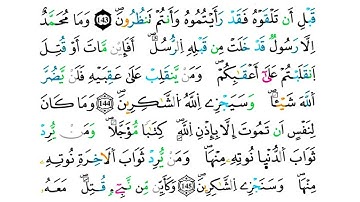 قَبْلِ أَن تَلْقَوْهُ فَقَدْ رَأَيْتُمُوهُ وَأَنتُمْ تَنظُرُونَ ۝١٤٣ وَمَا مُحَمَّدٌ
إِلَّا رَسُولٌ قَدْ خَلَتْ مِن قَبْلِهِ اِ۬لرُّسُلُ أَفَإِي۟ن مَّاتَ أَوْ قُتِلَ
اَ۪نقَلَبْتُمْ عَلَىٰٓ أَعْقَٰبِكُمْ وَمَنْ يَّنقَلِبْ عَلَىٰ عَقِبَيْهِ فَلَنْ يَّضُرَّ
اَ۬للَّهَ شَيْـًٔا وَسَيَجْزِے اِ۬للَّهُ اُ۬لشَّٰكِرِينَ ۝١٤٤ وَمَا كَانَ
لِنَفْسٍ أَن تَمُوتَ إِلَّا بِإِذْنِ اِ۬للَّهِ كِتَٰبًا مُّؤَجَّلًا وَمَنْ يُّرِدْ
ثَوَابَ اَ۬لدُّنْيَا نُوتِهِۦ مِنْهَا وَمَنْ يُّرِدْ ثَوَابَ اَ۬لَاخِرَةِ نُوتِهِۦ
مِنْهَا وَسَنَجْزِے اِ۬لشَّٰكِرِينَ ۝١٤٥ وَكَأَيِّن مِّن نَّبِےٓءٍ قُتِلَ مَعَهُۥ